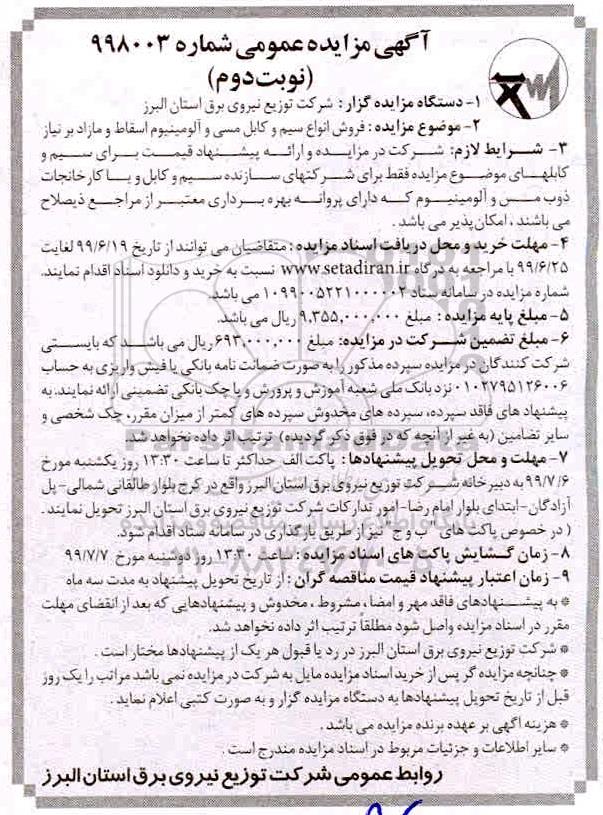 آگهی مزایده عمومی شماره ۹۹۸۰۰۳
(نوبت دوم)
۱- دستگاه مزایده گزار : شرکت توزیع نیروی برق استان البرز
۲- موضوع مزایده : فروش انواع سیم و کابل مسی و آلومینیوم اسقاط و مازاد بر نیاز
۳- شرایط لازم: شرکت در مزایده و ارائه پیشنهاد قیمت برای سیم و
کابلهای موضوع مزایده فقط برای شرکتهای سازنده سیم و کابل و یا کارخانجات
ذوب مس و آلومینیوم که دارای پروانه بهره برداری معتبر از مراجع ذیصلاح
می باشند ، امکان پذیر می باشد .
۴- مهلت خرید و محل دریافت اسناد مزایده : متقاضیان می توانند از تاریخ ۹۹/۶/۱۹ لغایت
۹۹/۶/۲۵ با مراجعه به درگاه www.setadiran.ir نسبت به خرید و دانلود اسناد اقدام نمایند.
شماره مزایده در سامانه ستاد ۱۰۹۹۰۰۵۲۲۱۰۰۰۰۰۲ می باشد.
۵- مبلغ پایه مزایده : مبلغ ۹,۳۵۵,۰۰۰,۰۰۰ ریال می باشد.
۶- مبلغ تضمین شرکت در مزایده: مبلغ ۶۹۳,۰۰۰,۰۰۰ ریال می باشد که بایستی
شرکت کنندگان در مزایده سپرده مذکور را به صورت ضمانت نامه بانکی یا فیش واریزی به حساب
۰۱۰۲۷۹۵۱۲۶۰۰۶ نزد بانک ملی شعبه آموزش و پرورش و یا چک بانکی تضمینی ارائه نمایند. به
پیشنهاد های فاقد سپرده، سپرده های مخدوش سپرده های کمتر از میزان مقرر، چک شخصی و
سایر تضامین (به غیر از آنچه که در فوق ذکر گردیده) ترتیب اثر داده نخواهد شد.
۷- مهلت و محل تحویل پیشنهادها : پاکت الف حداکثر تا ساعت ۱۳:۳۰ روز یکشنبه مورخ
۹۹/۷/۶ به دبیرخانه شرکت توزیع نیروی برق استان البرز واقع در کرج بلوار طالقانی شمالی- پل
آزادگان-ابتدای بلوار امام رضا- امور تدارکات شرکت توزیع نیروی برق استان البرز تحویل نمایند .
( در خصوص پاکت های " ب و ج " نیز از طریق بارگذاری در سامانه ستاد اقدام شود.
۸- زمان گشایش پاکت های اسناد مزایده : ساعت ۱۳:۳۰ روز دوشنبه مورخ ۹۹/۷/۷
۹- زمان اعتبار پیشنهاد قیمت مناقصه گران : از تاریخ تحویل پیشنهاد به مدت سه ماه
* به پیشنهادهای فاقد مهر و امضا ، مشروط ، مخدوش و پیشنهادهایی که بعد از انقضای مهلت
مقرر در اسناد مزایده واصل شود مطلقاً ترتیب اثر داده نخواهد شد.
* شرکت توزیع نیروی برق استان البرز در رد یا قبول هر یک از پیشنهادها مختار است .
* چنانچه مزایده گر پس از خرید اسناد مزایده مایل به شرکت در مزایده نمی باشد مراتب را یک روز
قبل از تاریخ تحویل پیشنهادها به دستگاه مزایده گزار و به صورت کتبی اعلام نماید .
* هزینه آگهی بر عهده برنده مزایده می باشد .
* سایر اطلاعات و جزئیات مربوط در اسناد مزایده مندرج است .
روابط عمومی شرکت توزیع نیروی برق استان البرز